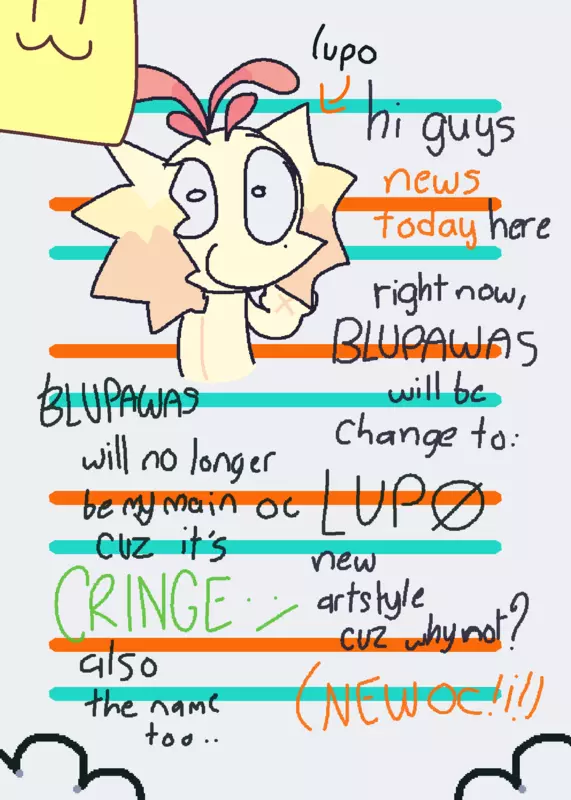 lupo
hi guys
news
today here
right now,
BLUPAWAS
will be
change to:
LUPØ
new
artstyle
cuz why not?
(NEW OC!i!)
BLUPAWAS
will no longer
be my main oc
cuz it's
CRINGE..
also
the name
too..